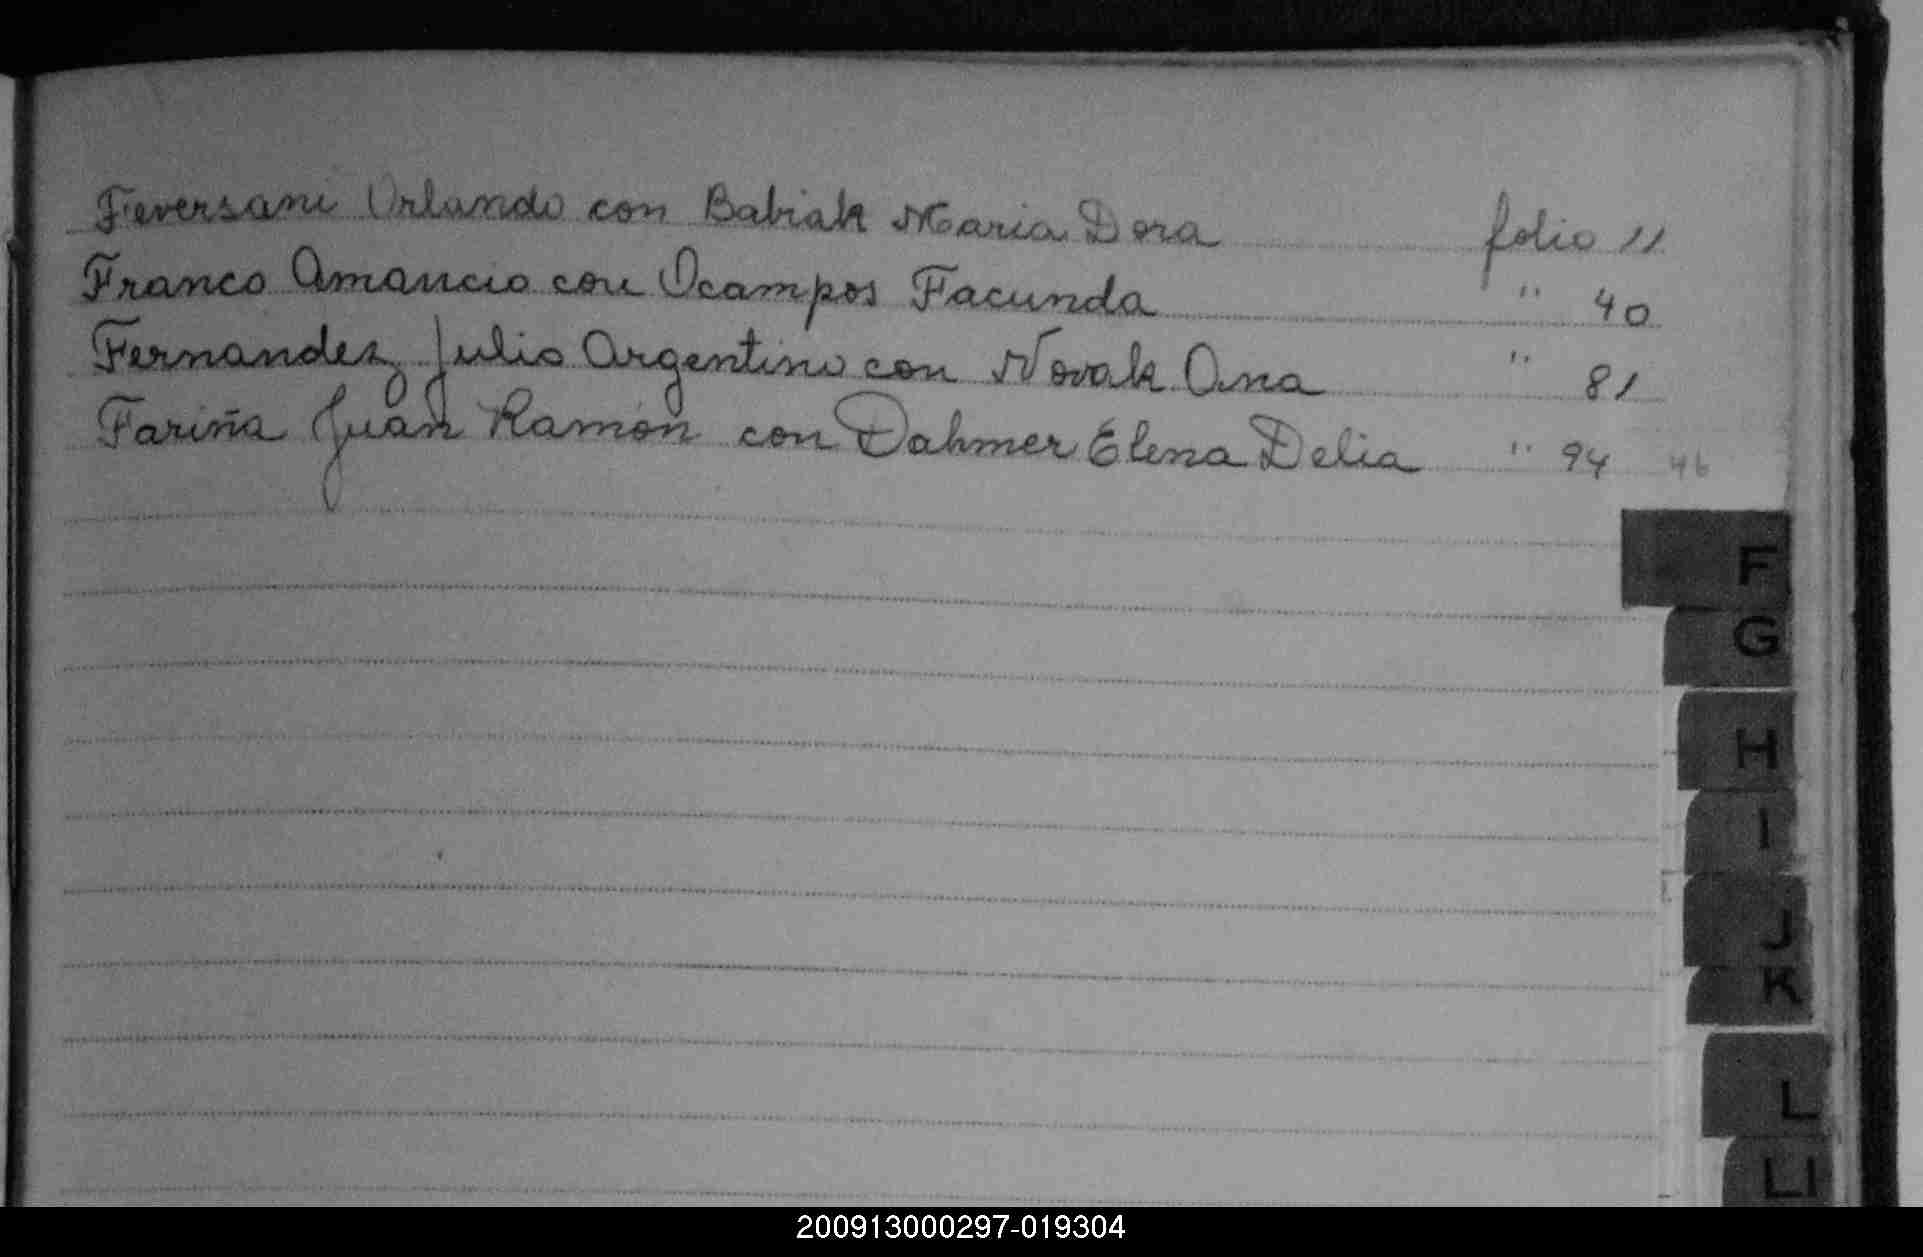 Feversani Orlando con Babiak Maria Dora folio 11
Franco Amancio con Ocampos Facunda " 40
Fernandez Julio Argentino con Novak Ana " 81
Fariña Juan Ramón con Dahmer Elena Delia " 94 46
F
G
H
I
J
K
L
Ll
200913000297-019304